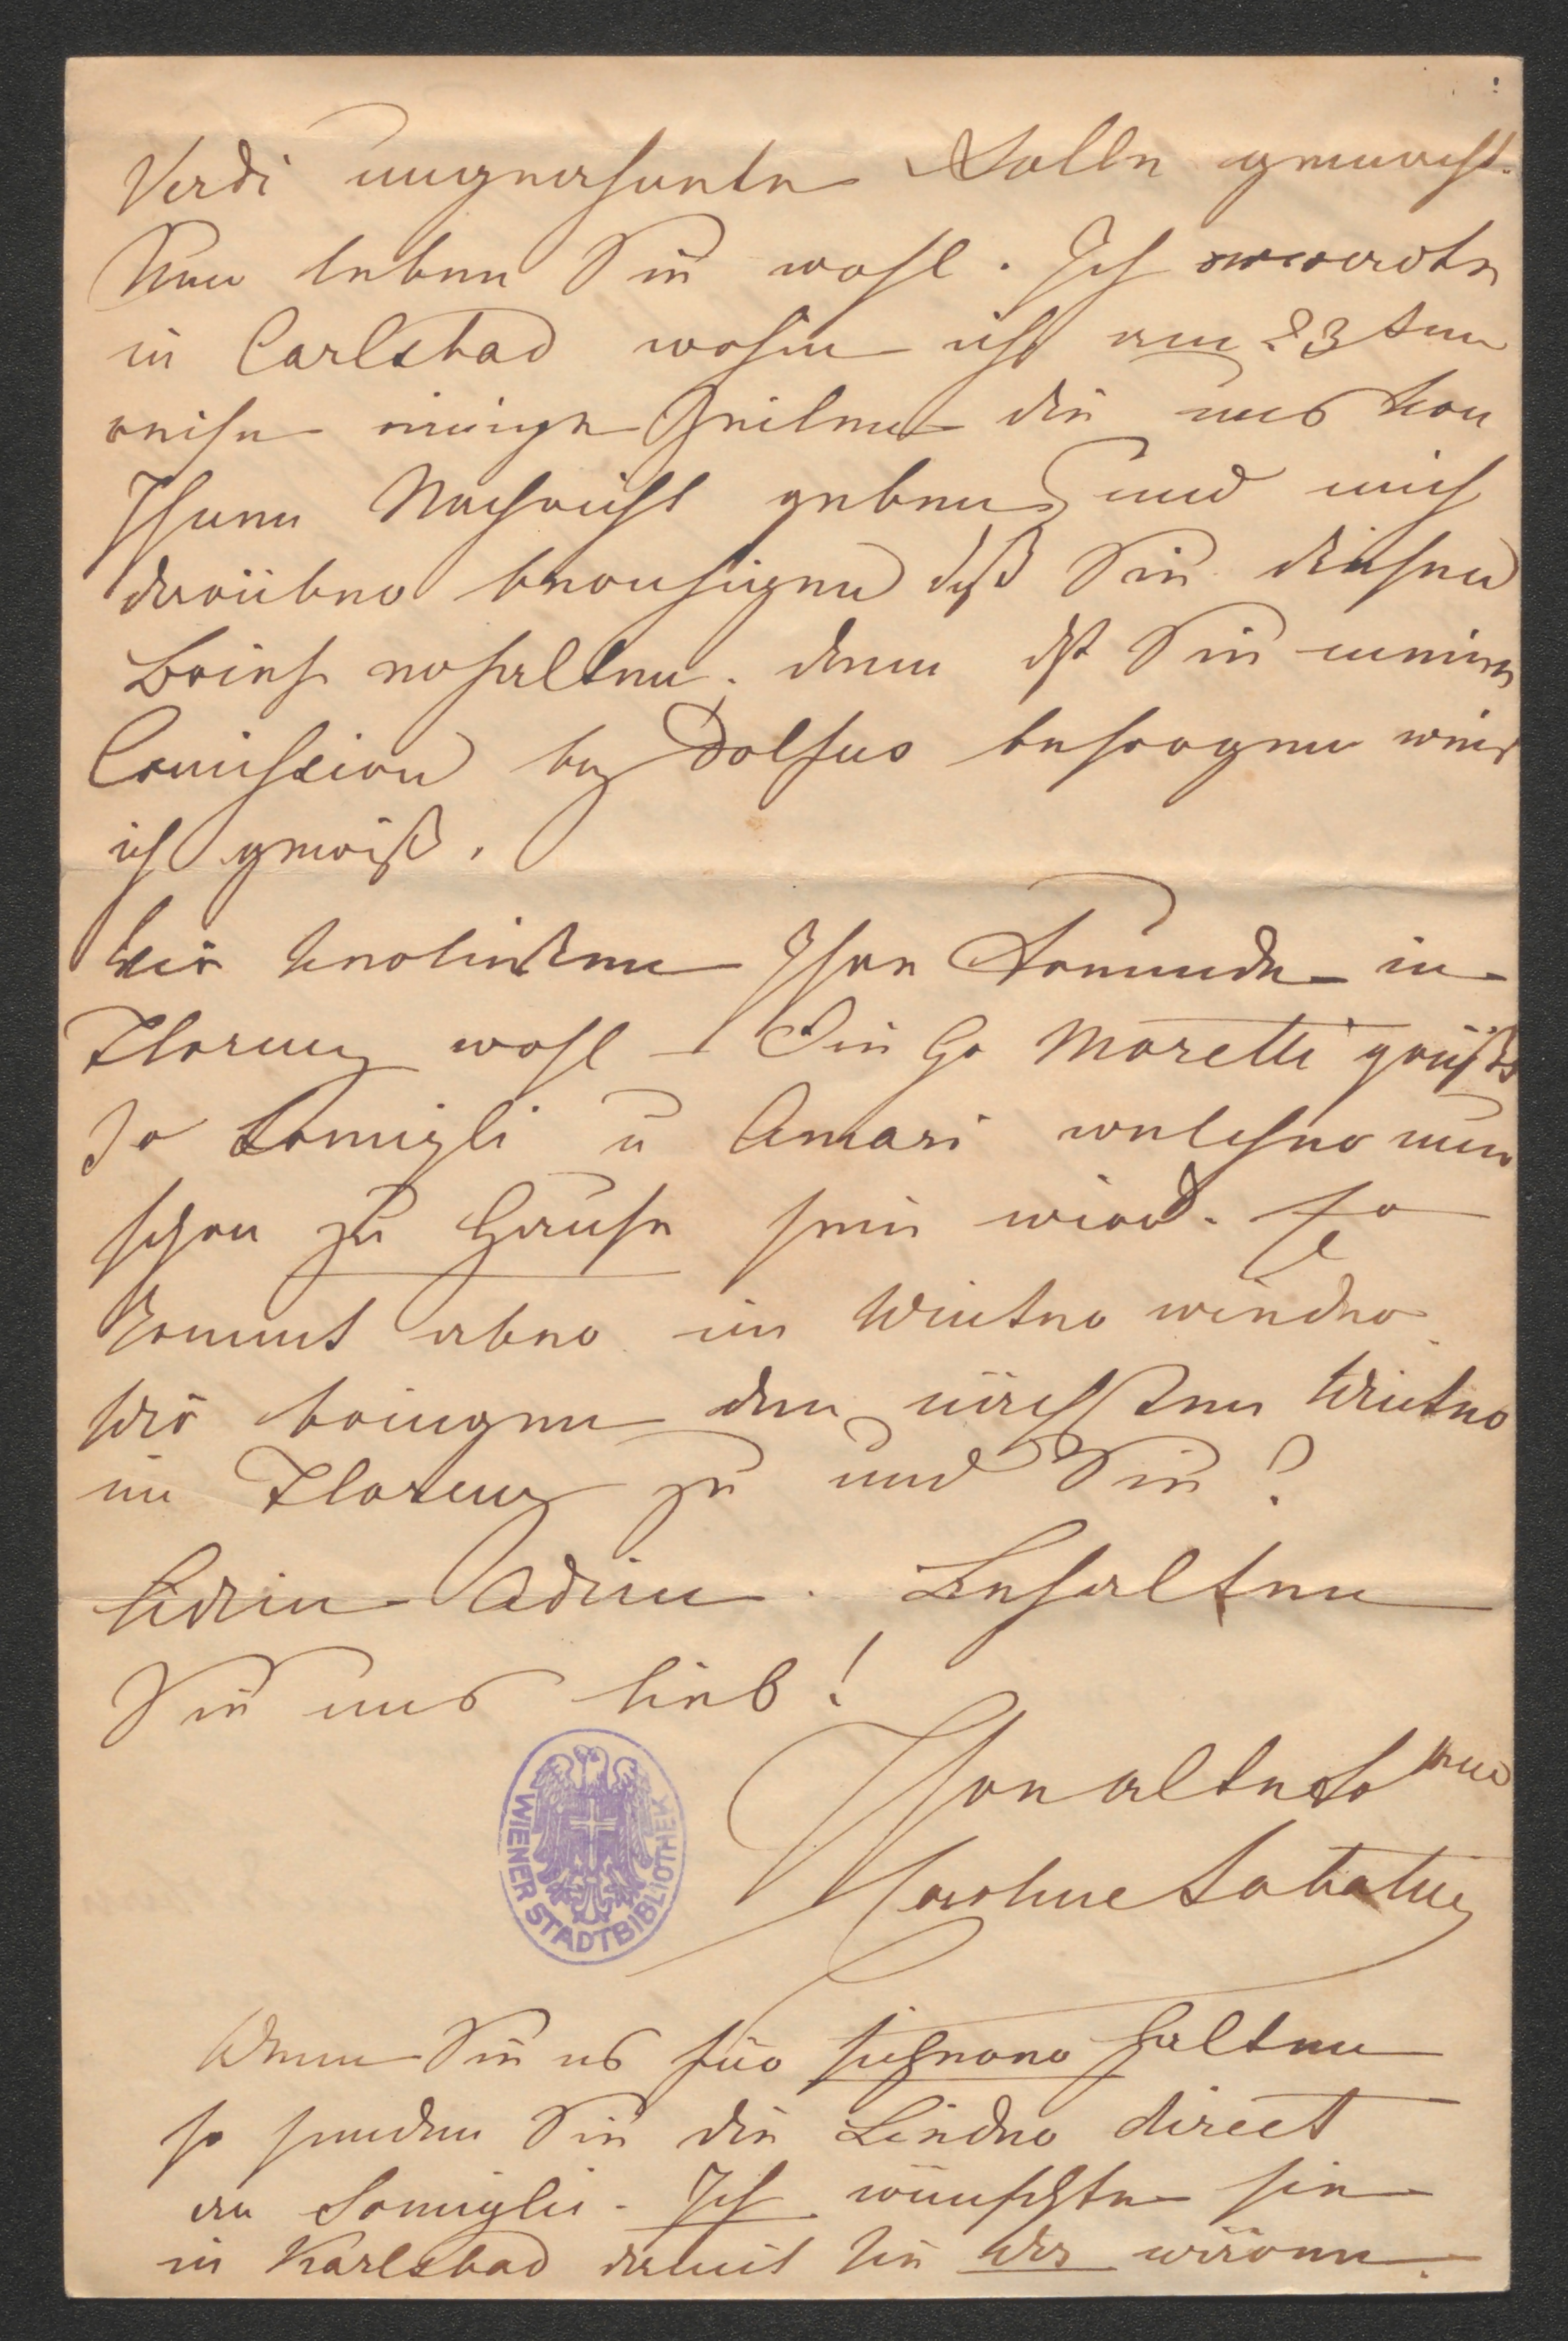 Verdi ungnersuchte Rolle gemacht.
Nun leben Sie wohl. Ich erwarte
in Carlsbad wohin ich am 23ten
reise einige Zeilen die uns von
Ihnen Nachricht geben und mich
darüber beruhigen daß Sie diesen
Brief erhalten. denn dß Sie meine
Comission by Dolfus besorgen weiß
ich gewiß.
Wir verließen Ihre Freunde in
Florenz wohl Die Ga Moretti grüßt
So Somigli u Amari welcher nun
schon zu Hause sein wird. Er
kommt aber im Winter wieder
Wir bringen den nächsten Winter
in Florenz zu und Sie?
Adieu. Behalten
Sie uns lieb!
Ihre alte treue
Caroline Sabatier
Wenn Sie es für sicherer halten
so senden Sie die Lieder direct
an Somigli. Ich wünschte sie
in Karlsbad damit sie da wären.
WIENER STADTBIBLIOTHEK